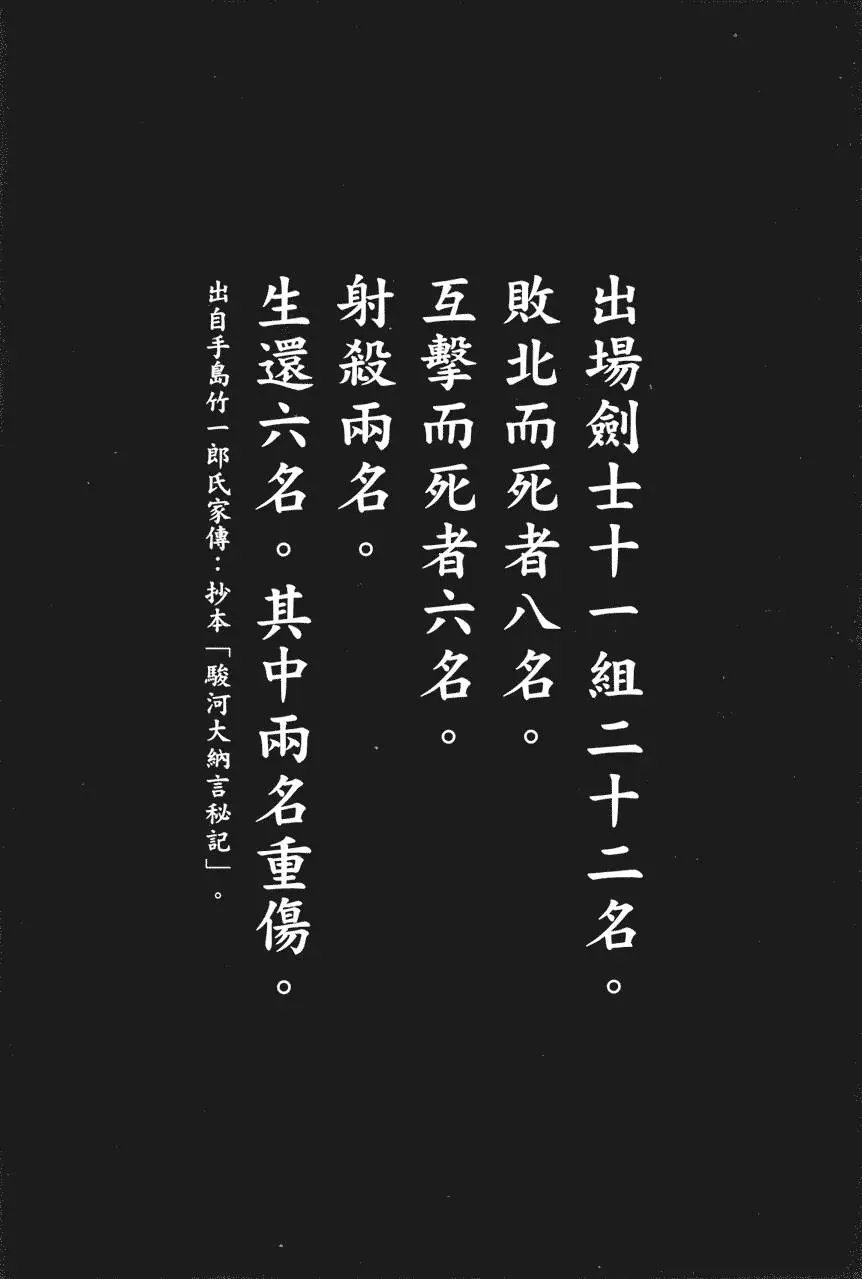 出場劍士十一組二十二名。
敗北而死者八名。
互擊而死者六名。
射殺兩名。
生還六名。其中兩名重傷。
出自手島竹一郎氏家傳：抄本「駿河大納言秘記」。